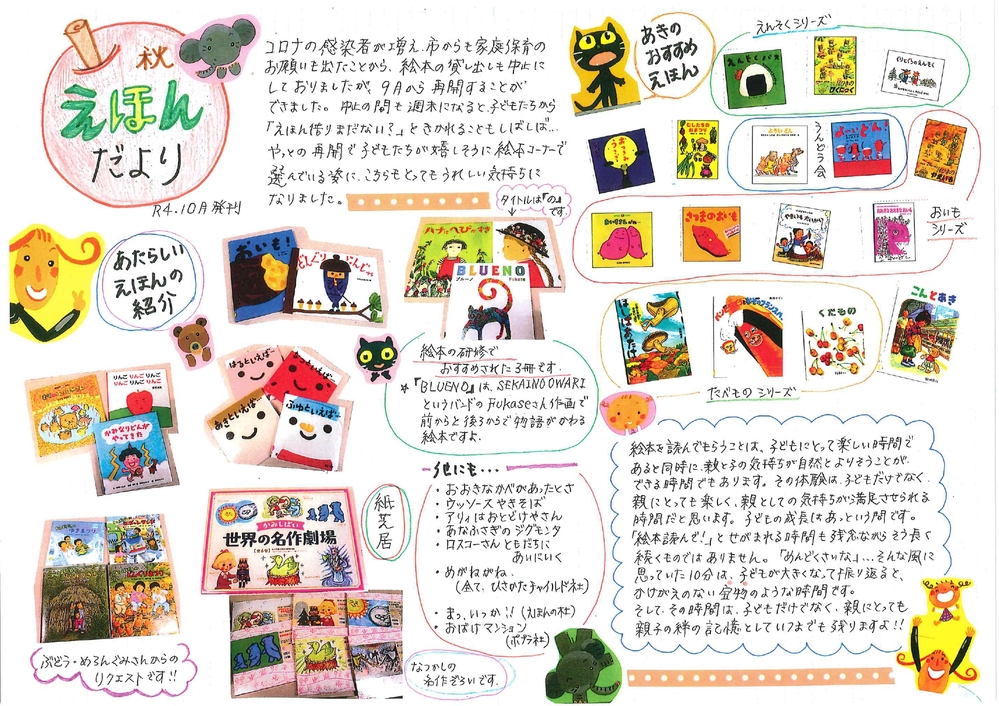 秋
えほん
だより
R4.10月発刊
コロナの感染者が増え、市からも家庭保育の
お願いも出たことから、絵本の貸し出しも中止に
しておりましたが、9月から再開することが
できました。中止の間も週末になると、子どもたちから
「えほん借りまだない?」ときかれることもしばしば…
やっとの再開で子どもたちが嬉しそうに絵本コーナーで
選んでいる姿に、こちらもとってもうれしい気持ちに
なりました。
タイトルは『の』
です。
あたらしい
えほんの
紹介
おいも!
どんぐり
ハナとへびのすき
BLUENO
ブルーノ
Fukase
絵本の研修で
おすすめされた3冊です。
★『BLUENO』は、SEKAINOOWARI
というバンドのFukaseさん作画で
前からと後ろからで物語がかわる
絵本ですよ。
りんごりんごりんご
りんごりんごりんご
かみなりどんが
やってきた
はるといえば…
あきといえば…
ふゆといえば…
紙芝居
かみしばい
世界の名作劇場
なつかしの
名作ぞろいです。
ぶどう・めろんぐみさんからの
リクエストです!!
他にも・・・
・おおきなかべがあったとさ
・ウッソーズやきそば
・アリィはおとどけやさん
・あなふさぎのジグモンタ
・ロスコーさんともだちに
あいにいく
・めがねがね
(全て、ひさかたチャイルド社)
・まっ、いっか!!(えほんの杜)
・おばけマンション
(ポプラ社)
あきの
おすすめ
えほん
えんそくシリーズ
えんそくバス
ぐりとぐらのえんそく
むしたちの
おまつり
よーいどん
よーいどん!
うんどう会
やきいも
おいも
シリーズ
さつまのおいも
やきいもするぞ
はじまりはたけ
パンどろぼうvsにせパンどろぼう
くだもの
こんとあき
たべものシリーズ
絵本を読んでもらうことは、子どもにとって楽しい時間で
あると同時に、親と子の気持ちが自然とよりそうことが
できる時間でもあります。その体験は、子どもだけでなく、
親にとっても楽しく、親としての気持ちが満足させられる
時間だと思います。子どもの成長はあっという間です。
「絵本読んで!」とせがまれる時間も残念ながらそう長く
続くものではありません。「めんどくさいな」…そんな風に
思っていた10分は、子どもが大きくなって振り返ると、
かけがえのない宝物のような時間です。
そして、その時間は、子どもだけでなく、親にとっても
親子の絆の記憶としていつまでも残りますよ!!